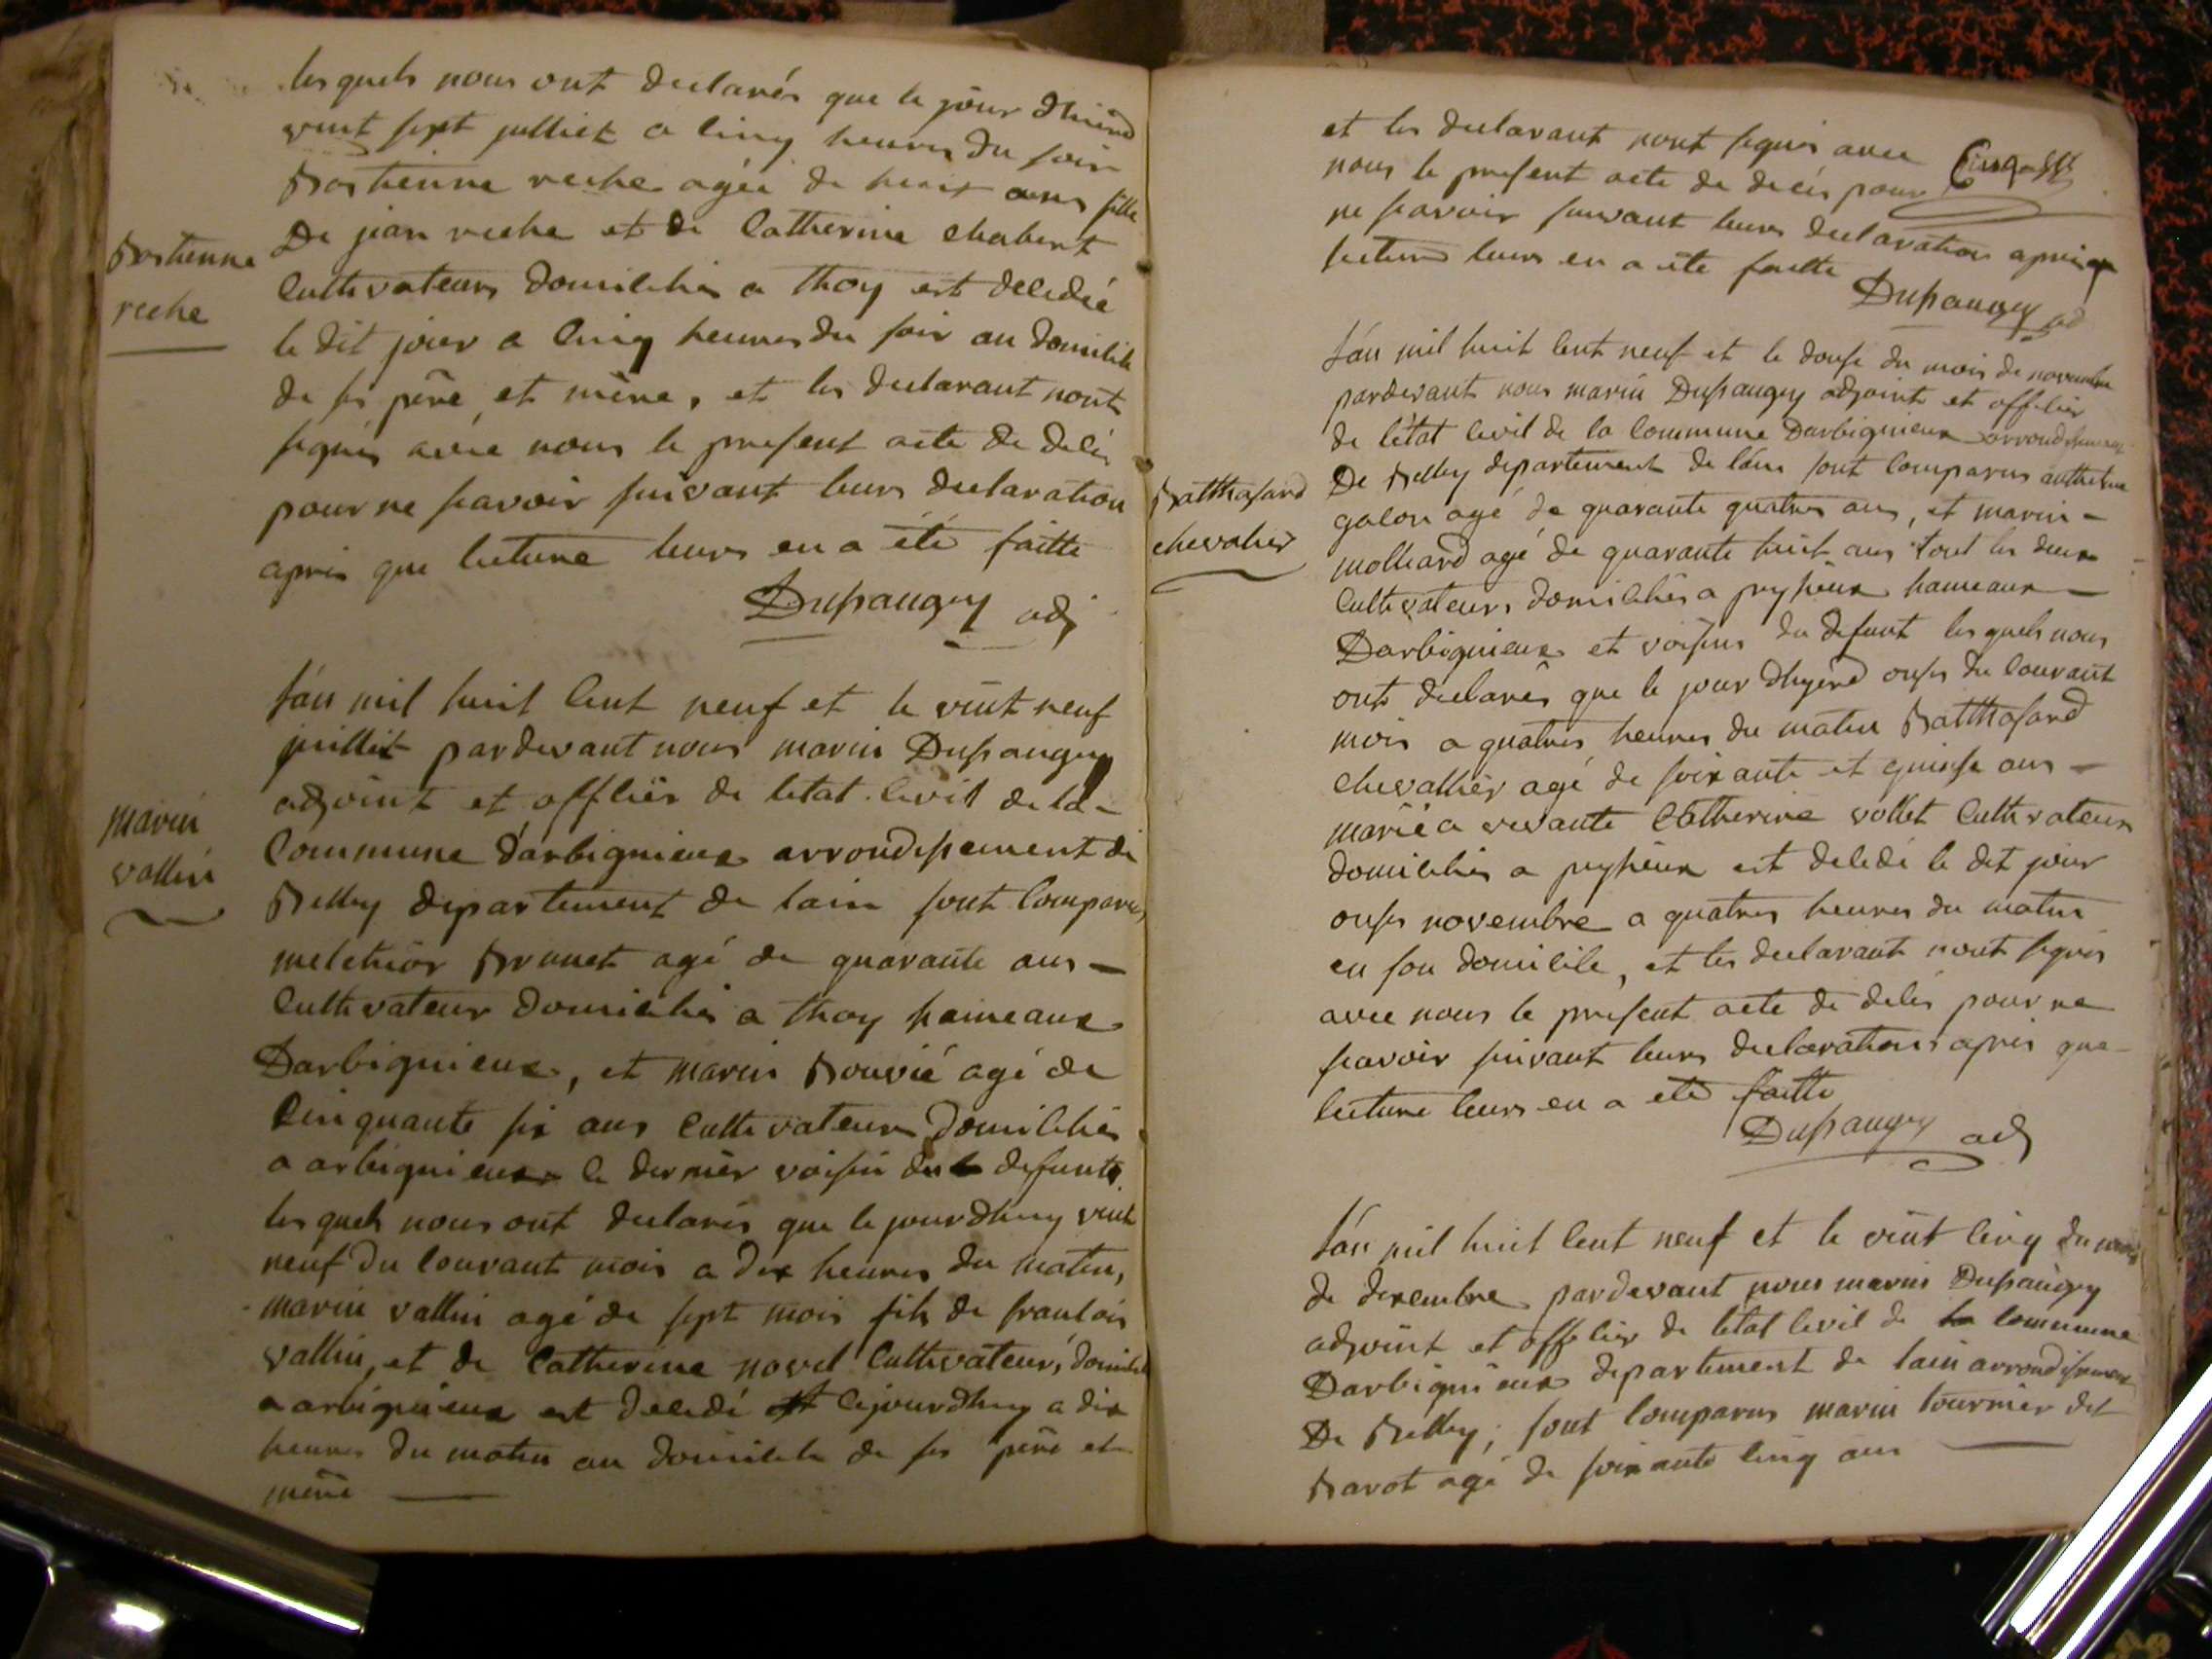 les quels nous ont declarés que le jour d'hierd
vint sept julliet a cinq heures du soir
Bastienne reche agée de huit ans fille
De jean reche et de Catherine chabert
Bastienne
reche
Cultivateurs domiciliés a thoy est decedée
le dit jour a cinq heures du soir au domicile
de ses père et mère, et les declarant n'ont
signés avec nous le present acte de decés
pour ne scavoir suivant leurs declaration
apres que lecture leurs en a été faitte
Dupaugey adj
L'an mil huit cent neuf et le vint neuf
juillit pardevant nous marin Dupaugey
adjoint et officier de l'etat civil de la
marin
vallin
Commune d'arbignieux arrondissement de
Belley departement de lain sont comparus
melchior Brunet agé de quarante ans
Cultivateur domiciliés a thoy hameaux
Darbignieux, et marin Bouvié agé de
Cinquante six ans Cultivateurs domiciliés
a arbignieux le dernièr voisin du defunt
les quels nous ont declarés que le jourdhuy vint
neuf du courant mois a dix heures du matin,
marin vallin agé de sept mois fils de francois
vallin, et de Catherine novel Cultivateurs, domicilé
a arbignieux est decedé cejourdhuy a dix
heures du matin au domicile de ses père et
mère
et les declarant n'ont signés avec
nous le present acte de decés pour
ne scavoir suivant leurs declaration apres q
lecture leurs en a été faitte
Dupaugey ad
L'an mil huit cent neuf et le douse du mois de novembre
pardevant nous marin Dupaugey adjoint et officier
de l'état civil de la Commune Darbignieux arrondissement
De Belley departement de l'ain sont comparus anthelme
Balthasard
chevalier
galon agé de quarante quatres ans, et marin
molliard agé de quarante huit ans tout les deux
Cultivateurs domiciliés a peyzieux hameaux
Darbignieux et voisins du defunt les quels nous
ont declarés que le jour dhyerd onses du courant
mois a quatres heures du matin Balthasard
chevallièr agé de soixante et quinse ans
mariéa vivante Catherine vollet Cultivateurs
domiciliés a peyzieux est decedé le dit jour
onses novembre a quatres heures du matin
en son domicile, et les declarant n'ont signés
avec nous le present acte de decés pour ne
scavoir suivant leurs declarations aprés que
lecture leurs en a eté faitte
Dupaugey adj
L'an mil huit cent neuf et le vint cinq du mois
de decembre pardevant nous marin Dupaugey
adjoint et officier de l'etat civil de la commune
Darbignieux departement de lain arrondissement
De Belley, sont comparus marin tournier dit
Bavot agé de soixante cinq ans